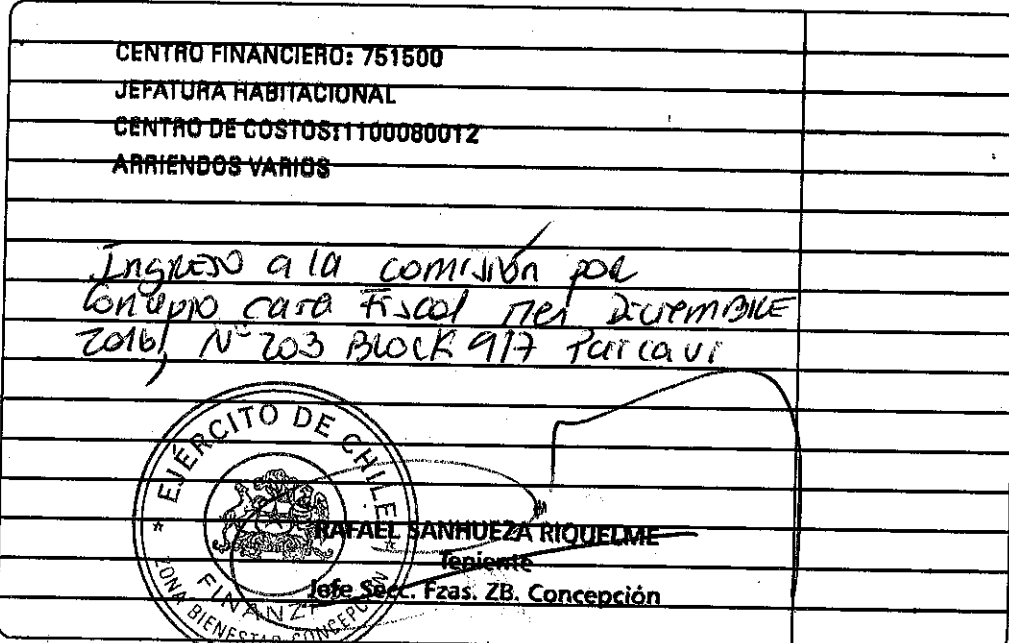 CENTRO FINANCIERO: 751500
JEFATURA HABITACIONAL
CENTRO DE COSTOS:1100080012
ARRIENDOS VARIOS
Ingreso a la comisión por
Concepto casa Fiscal mes Diciembre
2016, N° 203 Block 917
EJÉRCITO DE CHILE
FINANZ
ZONA BIENESTAR CONCEPCIÓN
RAFAEL SANHUEZA RIQUELME
Teniente
Jefe Secc. Fzas. ZB. Concepción